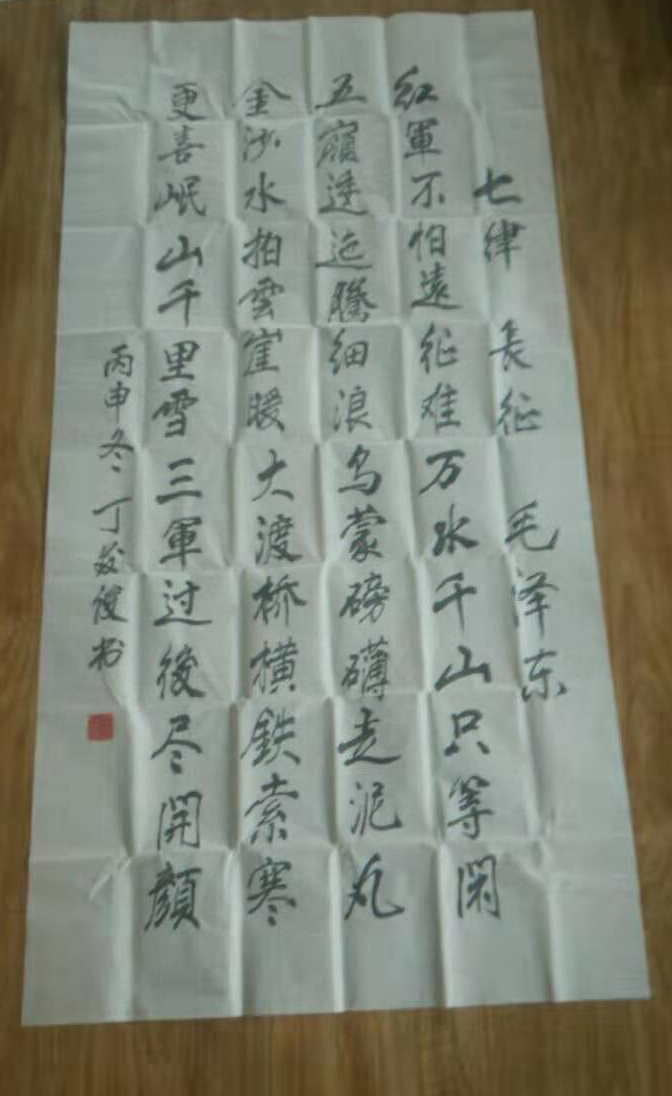 七律 長征 毛泽东
红軍不怕遠征难万水千山只等閑
五嶺逶迤騰细浪乌蒙磅礴走泥丸
金沙水拍雲崖暖大渡桥横鉄索寒
更喜岷山千里雪三軍过後尽開顏
丙申冬 丁